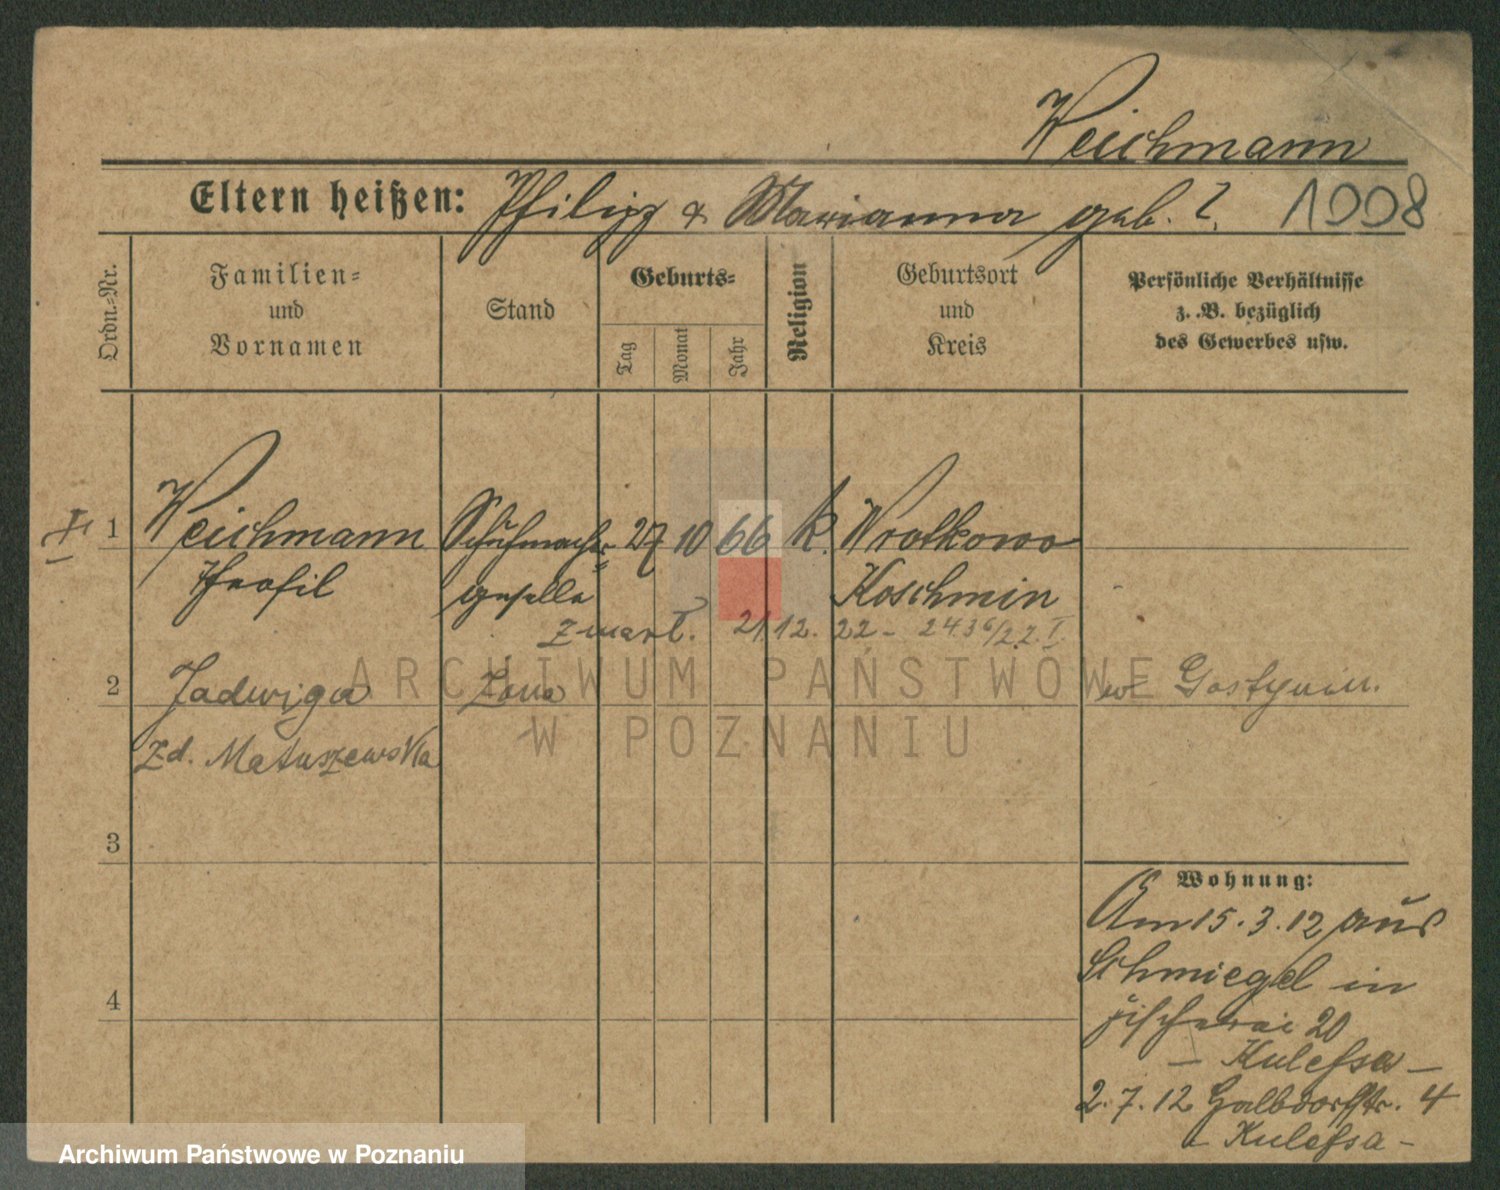 Weichmann
Eltern heißen: Philipp & Marianna geb. ?
1008
Ordn.-Nr.
Familien-
und
Vornamen
Stand
Geburts-
Tag
Monat
Jahr
Religion
Geburtsort
und
Kreis
Persönliche Verhältnisse
z. B. bezüglich
des Gewerbes usw.
1 Weichmann Schuhmacher- 27 10 66 k. Wrotkowo
Theofil geselle Koschmin
zmarł. 21 12. 22 - 2436/22. I.
2 Jadwiga Żona w Gostyniu.
zd. Matuszewska
3
4
Wohnung:
Am 15.3.12 aus
Schmiegel in
Fischerei 20
- Kulessa -
2.7.12 Halbdorfstr. 4
- Kulessa -
ARCHIWUM PAŃSTWOWE
W POZNANIU
Archiwum Państwowe w Poznaniu